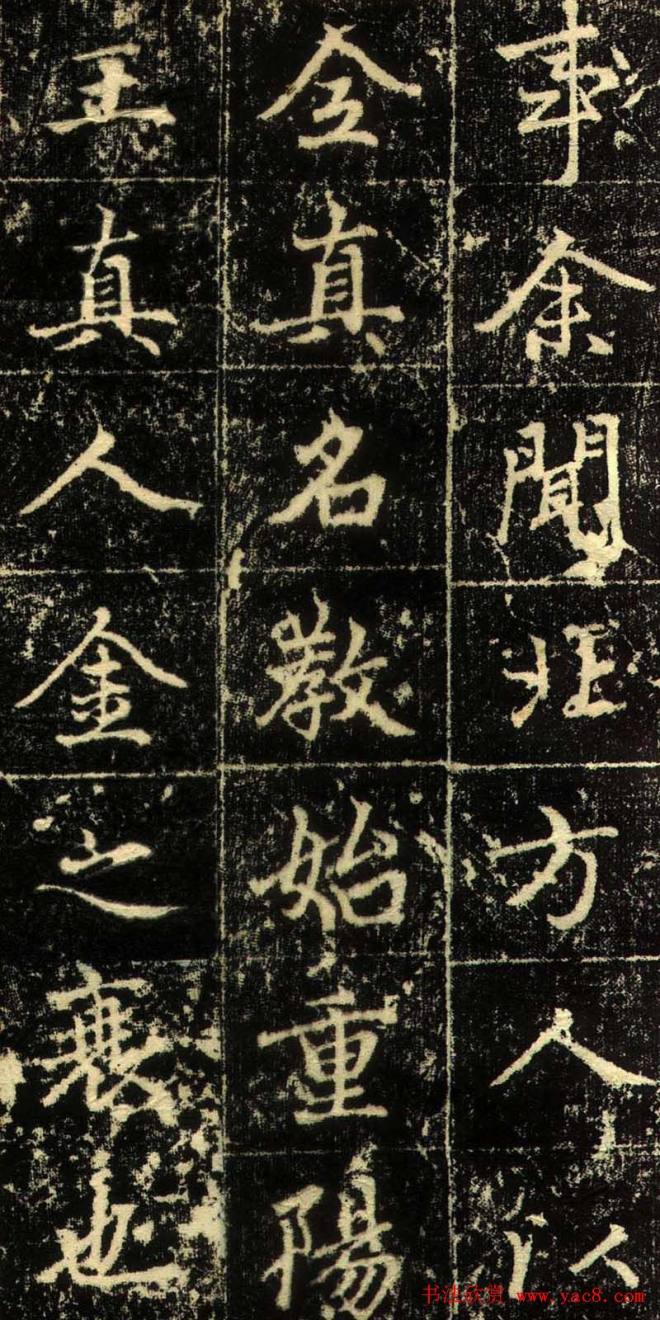 事余聞北方人以
全真名教始重陽
王真人金之衰也
书法欣赏 www.yac8.com